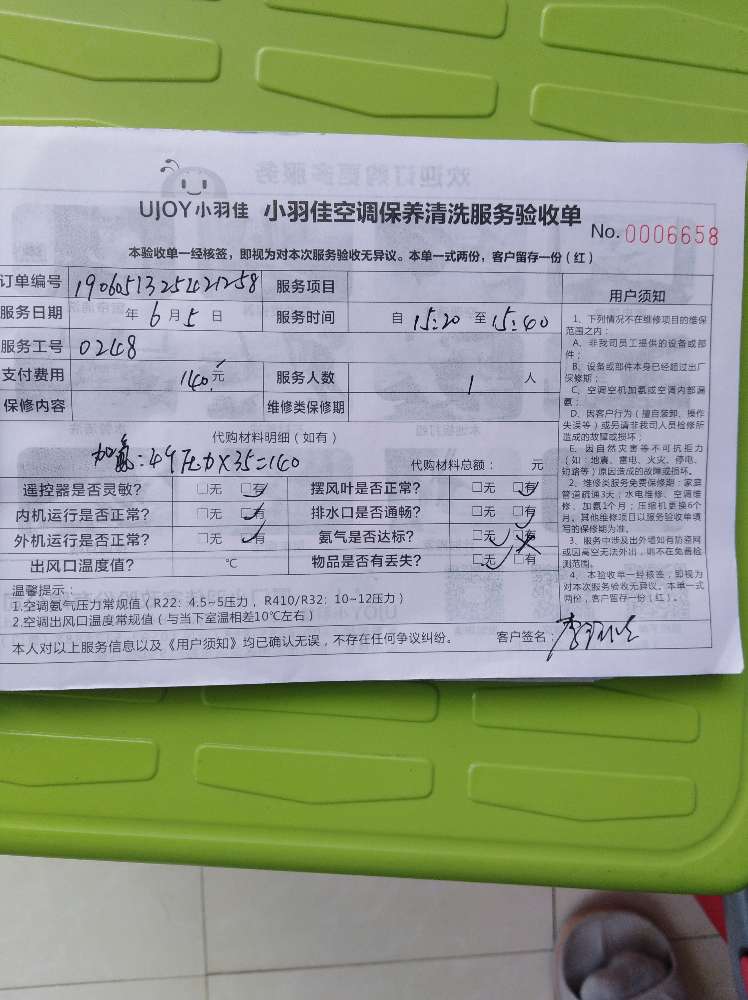 UJOY小羽佳 小羽佳空调保养清洗服务验收单
No. 0006658
本验收单一经核签，即视为对本次服务验收无异议。本单一式两份，客户留存一份（红）
订单编号 服务项目
服务日期 年 6 月 5 日 服务时间 自 15:20 至 15:40
服务工号 0248
支付费用 140 元 服务人数 1 人
保修内容 维修类保修期
代购材料明细（如有）
加氨:4个压力X35=140
代购材料总额： 元
遥控器是否灵敏? □无 □有 摆风叶是否正常? □无 □有
内机运行是否正常? □无 □有 排水口是否通畅? □无 □有
外机运行是否正常? □无 □有 氨气是否达标? □无 □有
出风口温度值? ℃ 物品是否有丢失? □无 □有
温馨提示：
1.空调氨气压力常规值（R22：4.5~5压力， R410/R32；10~12压力）
2.空调出风口温度常规值（与当下室温相差10℃左右）
本人对以上服务信息以及《用户须知》均已确认无误，不存在任何争议纠纷。 客户签名：
用户须知
1、下列情况不在维修项目的维保
范围之内：
A、非我司员工提供的设备或部
件；
B、设备或部件本身已经超过出厂
保修期；
C、空调空机加氨或空调内部漏
氨；
D、因客户行为（擅自装卸、操作
失误等）或另请非我司人员检修所
造成的故障或损坏；
E、因自然灾害等不可抗拒力
（如：地震、雷电、火灾、停电、
短路等）原因造成的故障或损坏。
2、维修类服务免费保修期：家庭
管道疏通3天；水电维修、空调维
修、加氨1个月；压缩机更换6个
月。其他维修项目以服务验收单填
写的保修期为准。
3、服务中涉及出外墙如有防盗网
或因高空无法外出，则不在免费检
测范围。
4、本验收单一经核签，即视为
对本次服务验收无异议。本单一式
两份，客户留存一份（红）。
欢迎订购更多服务